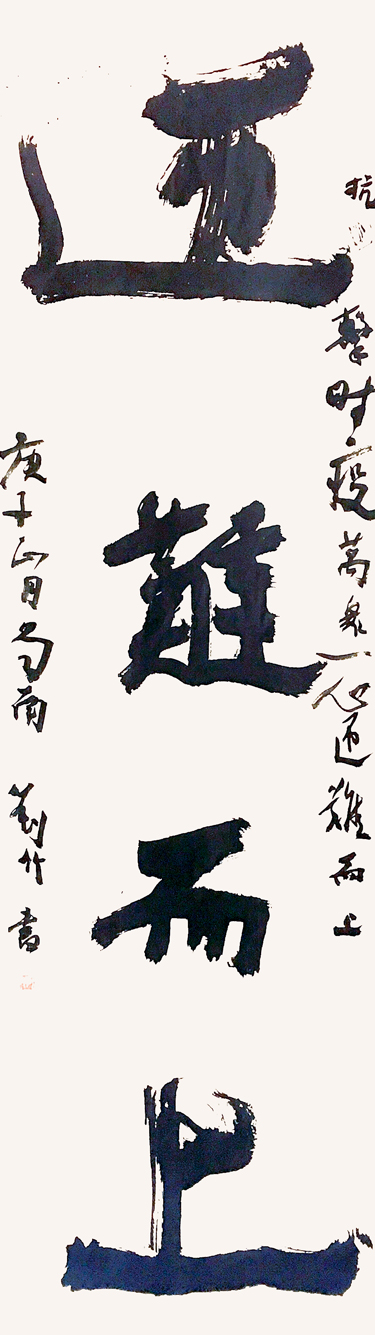 抗擊时疫萬衆一心迎難而上
迎難而上
庚子正月蜀南劉竹書